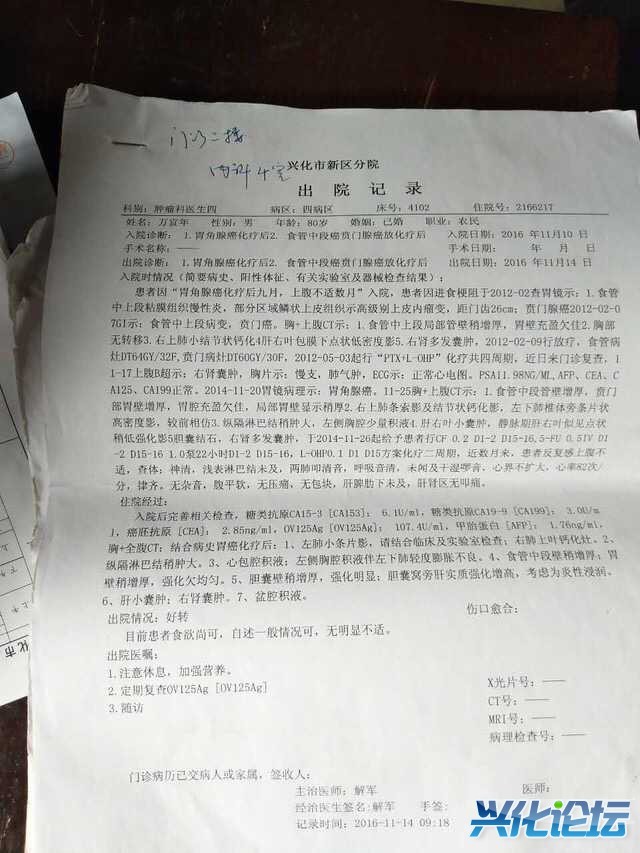 门诊二楼
内科
兴化市新区分院
出 院 记 录
科别：肿瘤科医生四 病区：四病区 床号：4102 住院号：2166217
姓名：万宜年 性别：男 年龄：80岁 婚姻：已婚 职业：农民
入院诊断： 1.胃角腺癌化疗后2. 食管中段癌贲门腺癌放化疗后 入院日期：2016 年11月10 日
手术名称：—— 手术日期： 年 月 日
出院诊断： 1.胃角腺癌化疗后2. 食管中段癌贲门腺癌放化疗后 出院日期：2016 年11月14 日
入院时情况（简要病史、阳性体征、有关实验室及器械检查结果）：
患者因“胃角腺癌化疗后九月，上腹不适数月”入院，患者因进食梗阻于2012-02查胃镜示：1.食管
中上段粘膜组织慢性炎，部分区域鳞状上皮组织示高级别上皮内瘤变，距门齿26cm；贲门腺癌2012-02-0
7GI示：食管中上段病变，贲门癌。胸+上腹CT示：1.食管中上段局部管壁稍增厚，胃壁充盈欠佳2.胸部
无转移3.右上肺小结节状钙化4肝右叶包膜下点状低密度影5.右肾多发囊肿，2012-02-09行放疗，食管病
灶DT64GY/32F,贲门病灶DT60GY/30F，2012-05-03起行“PTX+L-OHP”化疗共四周期，近日来门诊复查，1
1-17上腹B超示：右肾囊肿，胸片示：慢支，肺气肿，ECG示：正常心电图。PSA11.98NG/ML,AFP、CEA、C
A125、CA199正常。2014-11-20胃镜病理示：胃角腺癌。11-25胸+上腹CT示：1.食管中段管壁增厚，贲门
部胃壁增厚，胃腔充盈欠佳，局部胃壁显示稍厚2.右上肺条索影及结节状钙化影，左下肺椎体旁条片状
高密度影，较前相仿3.纵隔淋巴结稍肿大，左侧胸腔少量积液4.肝右叶小囊肿，静脉期肝右叶似见点状
稍低强化影5胆囊结石，右肾多发囊肿，于2014-11-26起给予患者行CF 0.2 D1-2 D15-16,5-FU 0.5IV D1
-2 D15-16 1.0泵22小时D1-2 D15-16, L-OHP0.1 D1 D15方案化疗二周期，近数月来，患者反复感上腹不
适，查体：神清，浅表淋巴结未及，两肺叩清音，呼吸音清，未闻及干湿啰音，心界不扩大，心率82次/
分，律齐。无杂音，腹平软，无压痛，无包块，肝脾肋下未及，肝肾区无叩痛。
住院经过：
入院后完善相关检查，糖类抗原CA15-3 [CA153]： 6.1U/ml，糖类抗原CA19-9 [CA199]： 3.0U/m
l，癌胚抗原 [CEA]： 2.85ng/ml，OV125Ag [OV125Ag]： 107.4U/ml，甲胎蛋白 [AFP]： 1.76ng/ml，
胸+全腹CT：结合病史胃癌化疗后：1、左肺小条片影，请结合临床及实验室检查；右肺上叶钙化灶。2、
纵隔淋巴结稍肿大。3、心包腔积液；左侧胸腔积液伴左下肺轻度膨胀不良。4、食管中段壁稍增厚；胃
壁稍增厚，强化欠均匀。5、胆囊壁稍增厚，强化明显；胆囊窝旁肝实质强化增高，考虑为炎性浸润。
6、肝小囊肿；右肾囊肿。7、盆腔积液。
出院情况：好转 伤口愈合：
目前患者食欲尚可，自述一般情况可，无明显不适。
出院医嘱：
1.注意休息，加强营养。
2.定期复查OV125Ag [OV125Ag]
3.随访
X光片号：——
CT号：——
MRI号：——
病理检查号：——
门诊病历已交病人或家属，签收人：
主治医师：解军 医师：
经治医生签名:解军 手签：
记录时间：2016-11-14 09:18
兴化论坛
化市